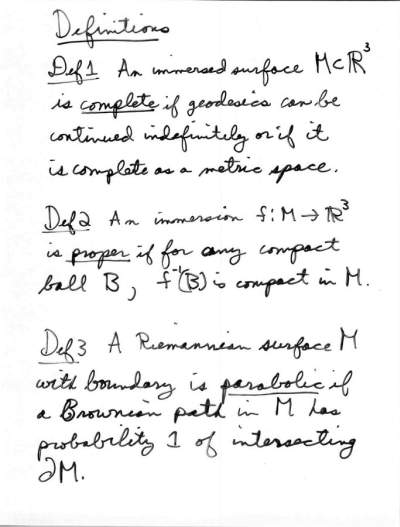 Definitions
Def 1 An immersed surface M⊂ℝ³
is complete if geodesics can be
continued indefinitely or if it
is complete as a metric space.
Def 2 An immersion f: M → ℝ³
is proper if for any compact
ball B, f⁻¹(B) is compact in M.
Def. 3 A Riemannian surface M
with boundary is parabolic if
a Brownian path in M has
probability 1 of intersecting
∂M.